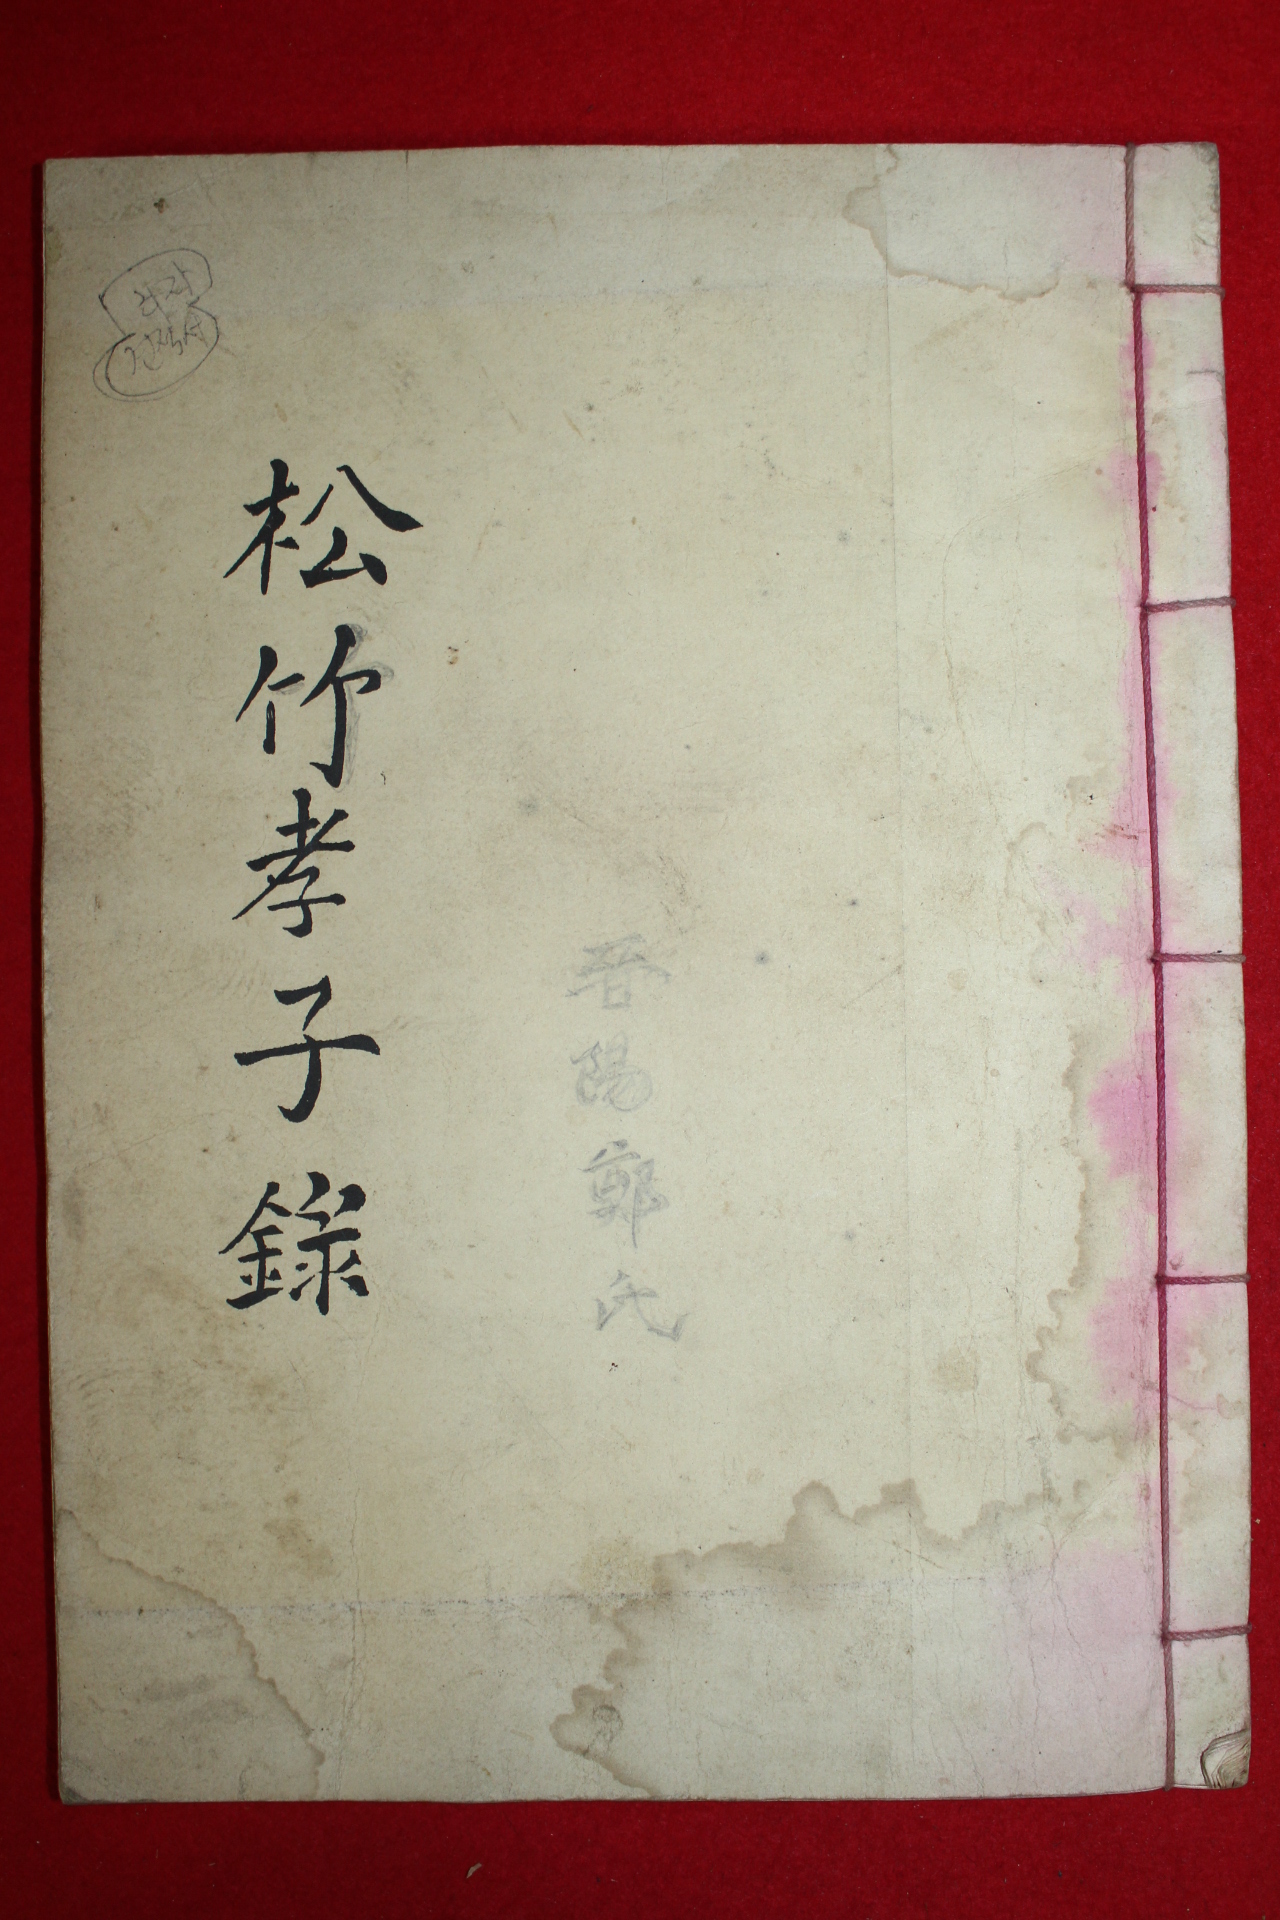 松竹孝子錄
晉陽鄭氏